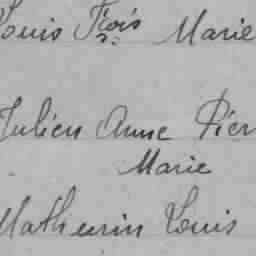 Louis Frçois Marie
Julien Anne Pier
Marie
Mathurin Louis